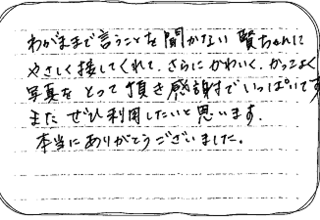 わがままで言うことを聞かない賢ちゃんに
やさしく接してくれて、さらにかわいく、かっこよく
写真をとって頂き感謝でいっぱいです
また ぜひ利用したいと思います.
本当にありがとうございました。